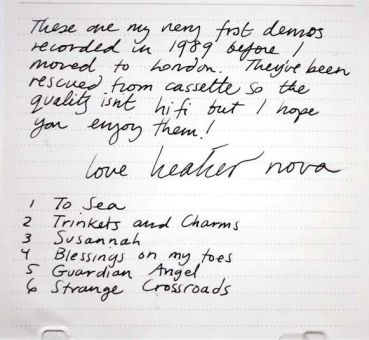 These are my very first demos
recorded in 1989 before I
moved to London. They've been
rescued from cassette so the
quality isnt hifi but I hope
you enjoy them!
love heather nova
1 To Sea
2 Trinkets and Charms
3 Susannah
4 Blessings on my toes
5 Guardian Angel
6 Strange Crossroads